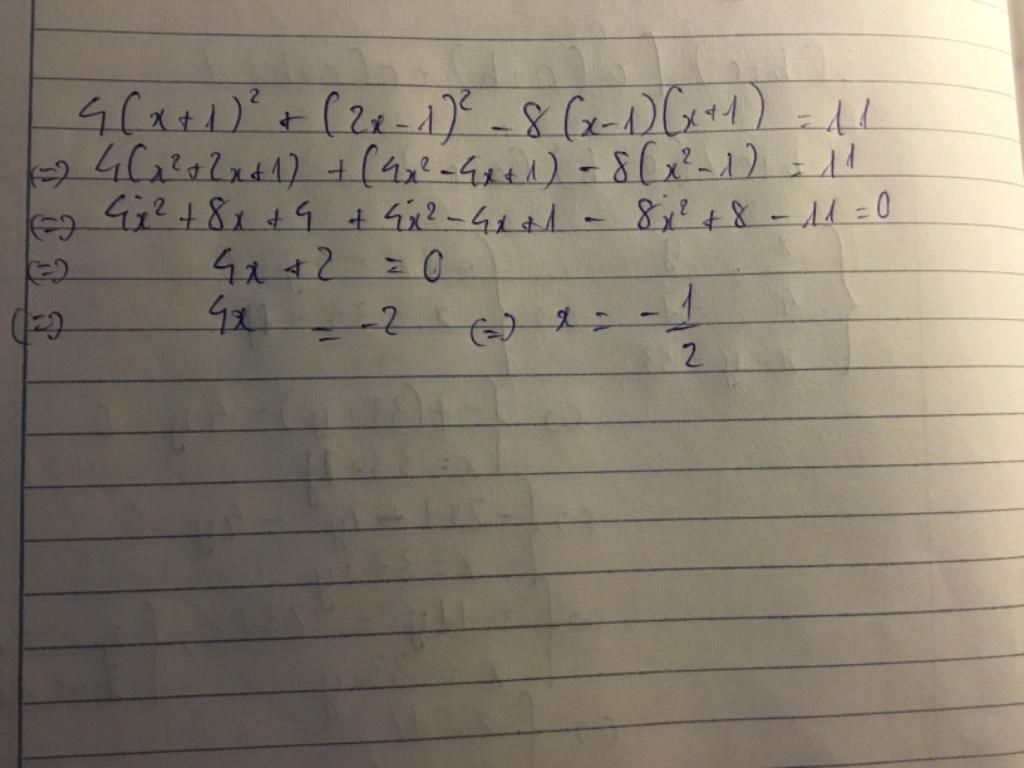 4(x+1)² + (2x-1)² - 8(x-1)(x+1) = 11
(=) 4(x²+2x+1) + (4x²-4x+1) - 8(x²-1) = 11
(=) 4x² + 8x + 4 + 4x² - 4x + 1 - 8x² + 8 - 11 = 0
(=) 4x + 2 = 0
(=) 4x = -2 (=) x = -1/2